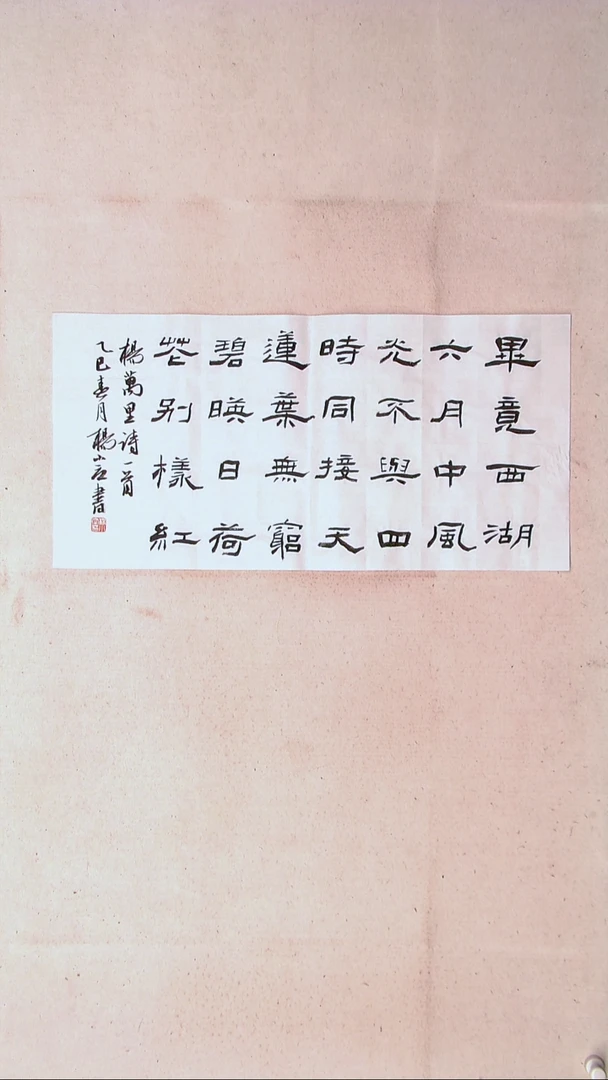 畢竟西湖
六月中風
光不與四
時同接天
蓮葉無窮
碧暎日荷
花別樣紅
楊萬里詩一首
乙巳春月楊書